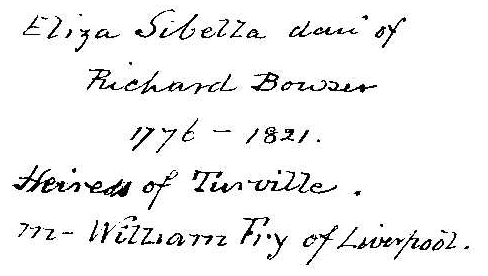 Eliza Sibella dau' of
Richard Bowser
1776 - 1821.
Heiress of Turville.
m - William Fry of Liverpool.